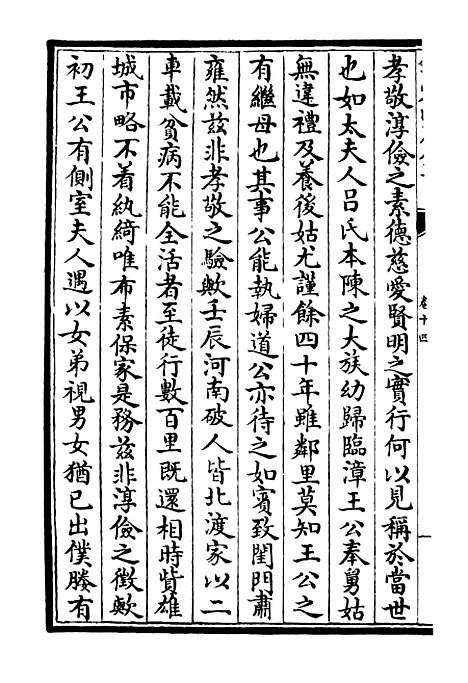 孝敬淳儉之素德慈愛賢明之實行何以見稱於當世
也如太夫人呂氏本陳之大族幼歸臨漳王公奉舅姑
無違禮及養後姑尤謹餘四十年雖鄰里莫知王公之
有繼母也其事公能執婦道公亦待之如賓致閨門肅
雍然茲非孝敬之驗歟壬辰河南破人皆北渡家以二
車載貧病不能全活者至徒行數百里既還相時貲雄
城市略不着紈綺唯布素保家是務茲非淳儉之徴歟
初王公有側室夫人遇以女弟視男女猶已出僕媵有
卷十四